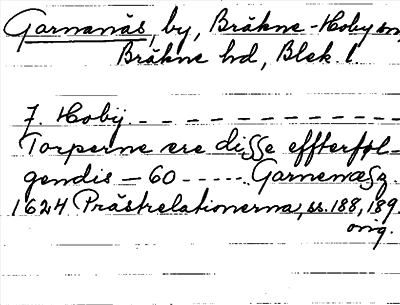 Garnanäs, by, Bräkne-Hoby sn,
Bräkne hd, Blek. l.
J. Hobÿ. – – – – – – – – – – –
Torperne ere disse effterføl-
gendis – 60 - - - - - Garnenæsz.
1624 Prästrelationerna, ss. 188, 189.
orig.